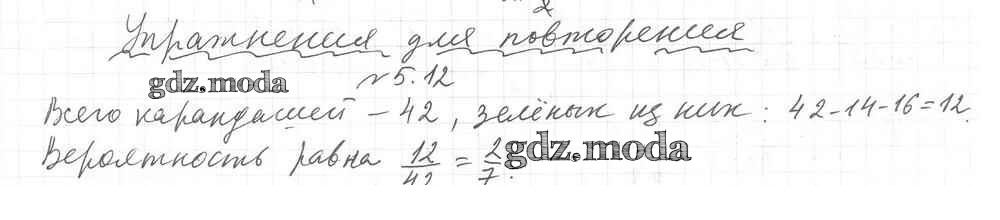 Упражнения для повторения
gdz.moda
№5.12
Всего карандашей – 42, зелёных из них: 42-14-16=12.
Вероятность равна 12/42 = 2/7.
gdz.moda